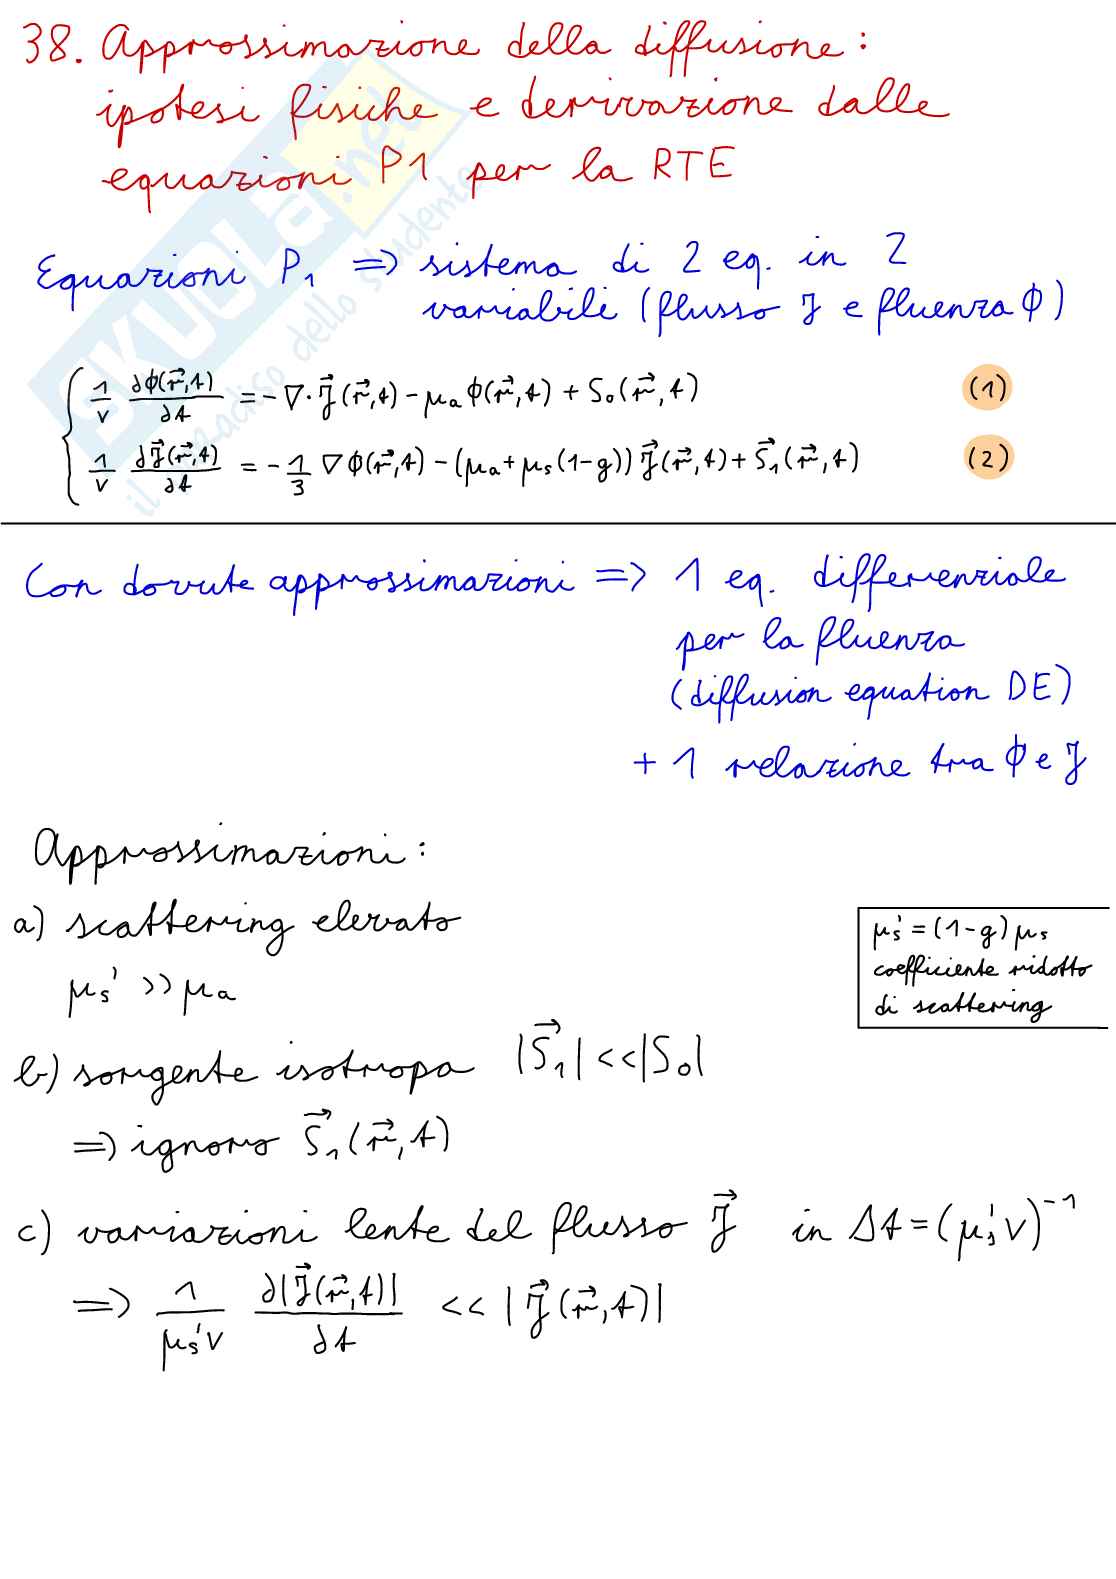 38. Approssimazione della diffusione:
ipotesi fisiche e derivazione dalle
equazioni P1 per la RTE
Equazioni P₁ => sistema di 2 eq. in 2
variabili (flusso J e fluenza Φ)
{ 1/v ∂ϕ(r⃗,t)/∂t = -∇·J⃗(r⃗,t) - μₐϕ(r⃗,t) + S₀(r⃗,t) (1)
1/v ∂J⃗(r⃗,t)/∂t = -1/3 ∇ϕ(r⃗,t) - (μₐ+μₛ(1-g)) J⃗(r⃗,t) + S⃗₁(r⃗,t) (2)
Con dovute approssimazioni => 1 eq. differenziale
per la fluenza
(diffusion equation DE)
+ 1 relazione tra ϕ e J
Approssimazioni:
a) scattering elevato
μₛ' >> μₐ
μₛ' = (1-g) μₛ
coefficiente ridotto
di scattering
b) sorgente isotropa |S⃗₁| << |S₀|
=> ignoro S⃗₁(r⃗,t)
c) variazioni lente del flusso J⃗ in Δt = (μₛ'v)⁻¹
=> 1/μₛ'v ∂|J⃗(r⃗,t)|/∂t << |J⃗(r⃗,t)|
SKUOLA.net
il paradiso dello studente